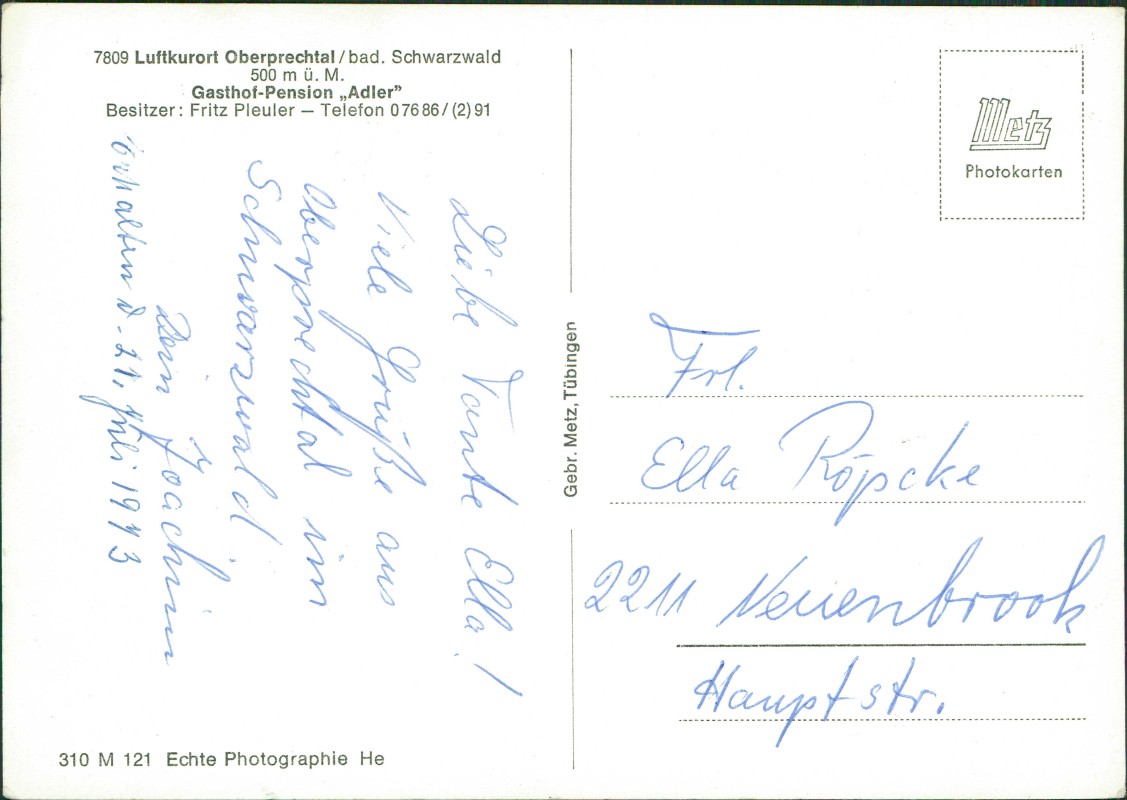 7809 Luftkurort Oberprechtal / bad. Schwarzwald
500 m ü. M.
Gasthof-Pension „Adler”
Besitzer: Fritz Pleuler — Telefon 07686/(2)91
Liebe Tante Ella!
Viele Grüße aus
Oberprechtal im
Schwarzwald
Dein Joachim
Erhalten d. 21. Juli 1973
310 M 121 Echte Photographie He
Gebr. Metz, Tübingen
Metz
Photokarten
Frl.
Ella Röpscke
2211 Neuenbrook
Hauptstr.